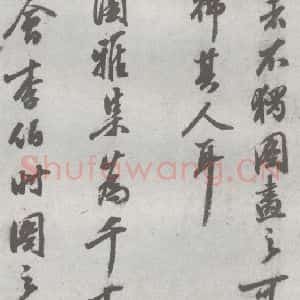 者不獨圖畫之可
彿其人耳
園雅集為千
會李伯時圖之
Shufawang.CN